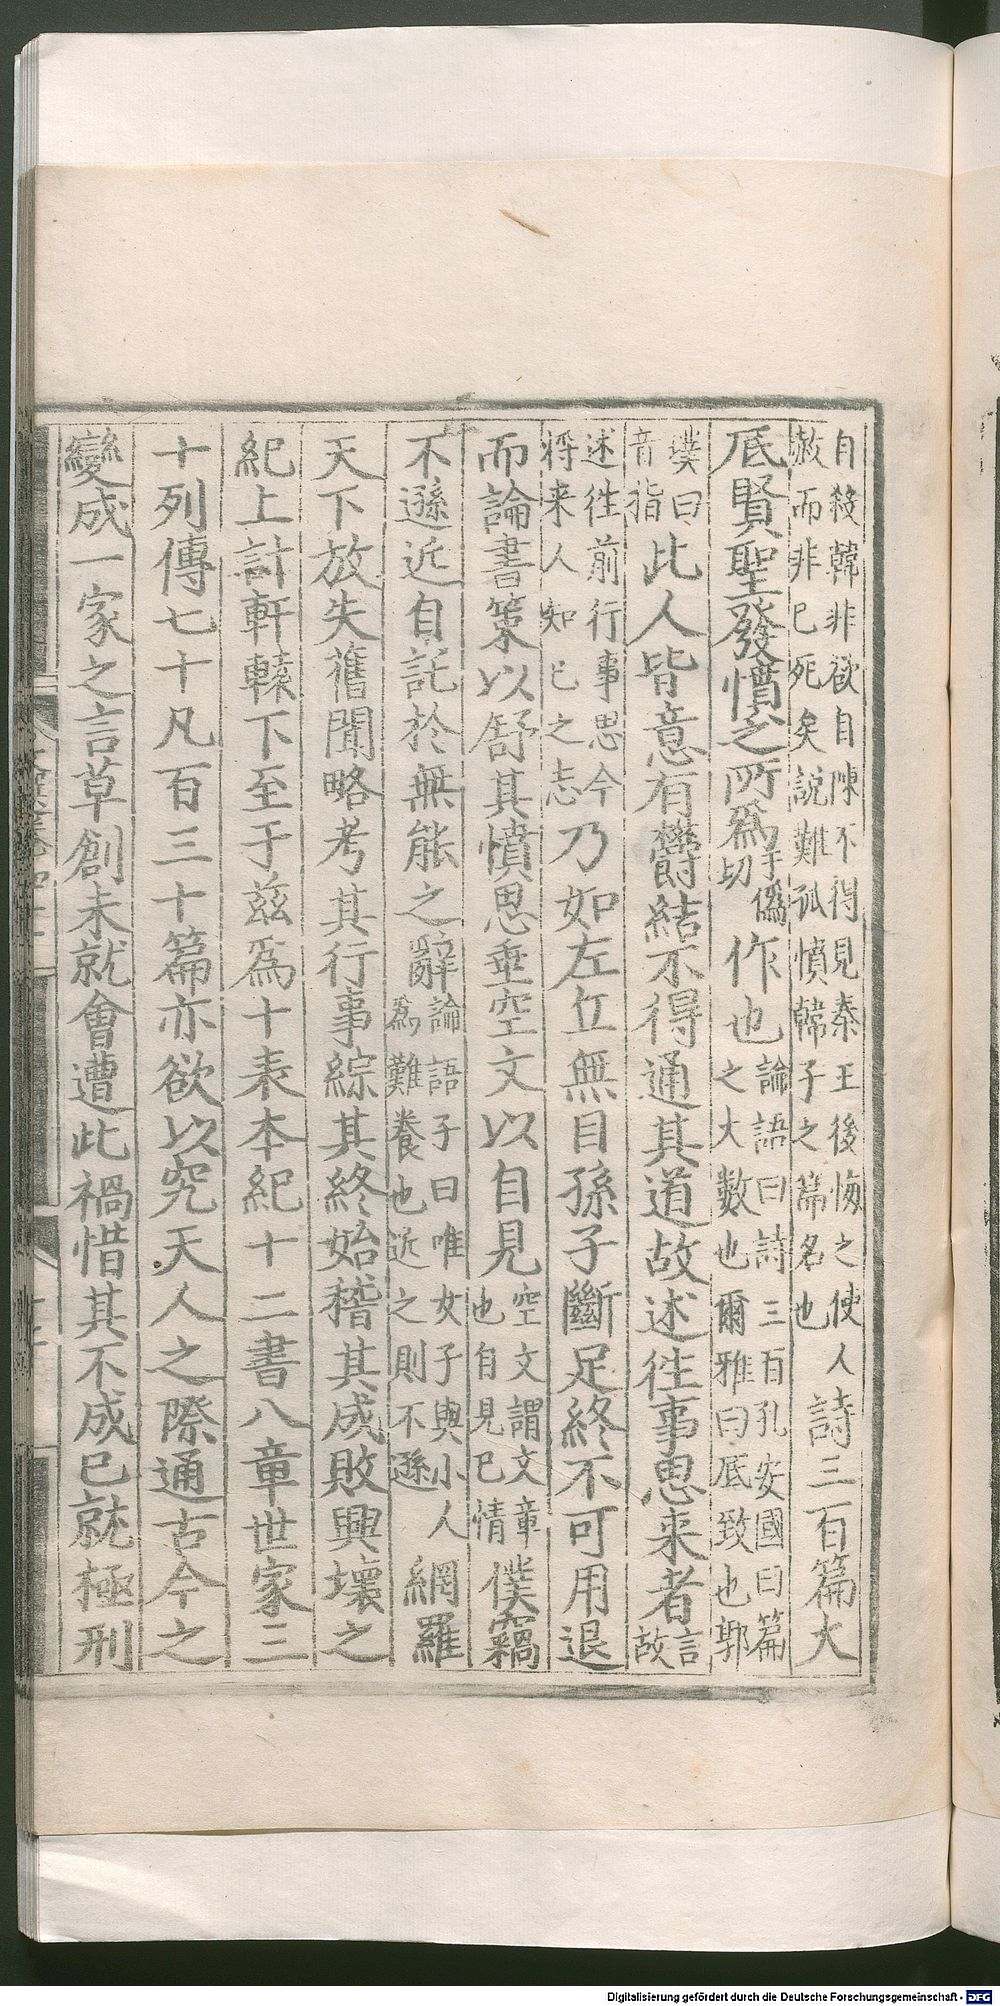 自殺韓非欲自陳不得見秦王後悔之使人
赦而非已死矣說難孤憤韓子之篇名也
詩三百篇大
底賢聖發憤之所爲
于僞
切
作也
論語曰詩三百孔安國曰篇
之大數也爾雅曰底致也郭
璞曰
音指
此人皆意有鬱結不得通其道故述徃事思来者
言
故
述徃前行事思今
将来人知已之志
乃如左丘無目孫子斷足終不可用退
而論書策以舒其憤思垂空文以自見
空文謂文章
也自見已情
僕竊
不遜近自託於無能之辭
論語子曰唯女子與小人
爲難養也近之則不遜
網羅
天下放失舊聞略考其行事綜其終始稽其成敗興壞之
紀上計軒轅下至于茲爲十表本紀十二書八章世家三
十列傳七十凡百三十篇亦欲以究天人之際通古今之
變成一家之言草創未就會遭此禍惜其不成已就極刑
Digitalisierung gefördert durch die Deutsche Forschungsgemeinschaft - DFG